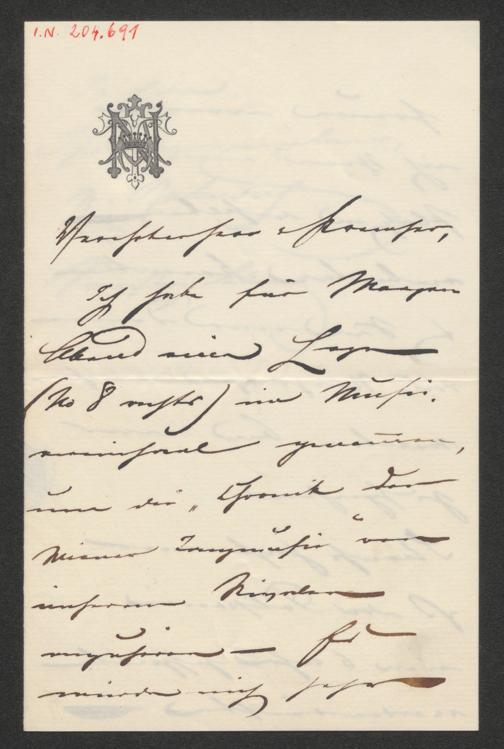 I.N. 204.691
Verehrtester
Ich habe für Morgen
Abend eine Loge
(No 8 rechts) im Musik-
vereinssaal genommen,
um die „Chronik der
Wiener Tanzmusik" von
unserem
anzuhören — Es
würde mich sehr